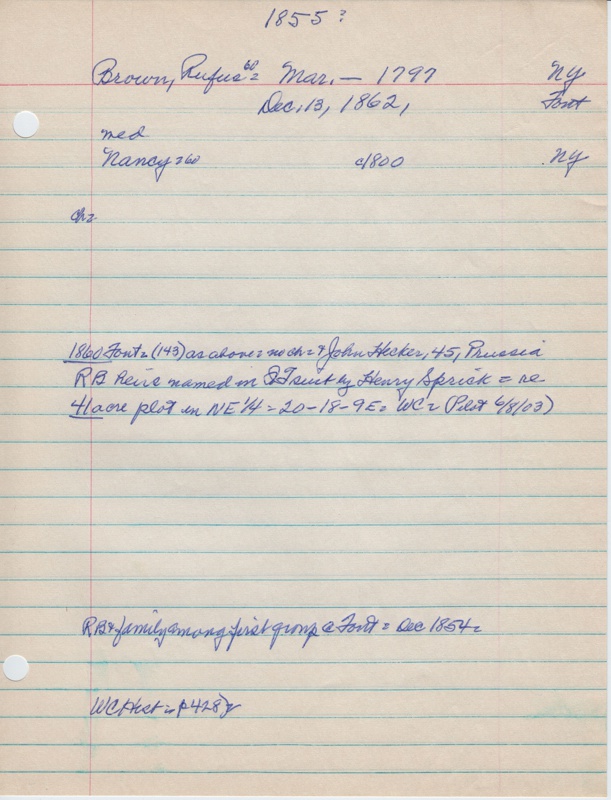 1855?
Brown, Rufus 60 = Mar. — 1797 NY
Dec. 13, 1862, Font
med
Nancy = 60 c1800 NY
ch=
1860 Font = (143) as above = no ch = & John Hecker, 45, Prussia
RB Heirs named in QT suit by Henry Sprick = re
41 acre plot in NE 1/4 = 20-18-9E = WC = (Pilot 4/8/03)
RB & family among first group @ Font = Dec 1854 =
WC Hist = p 428